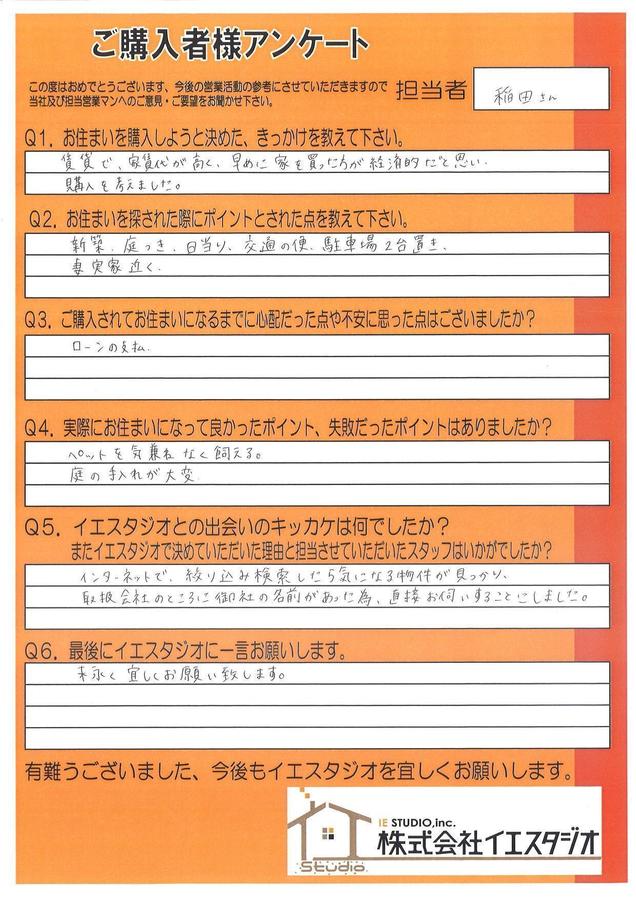 ご購入者様アンケート
この度はおめでとうございます、今後の営業活動の参考にさせていただきますので
当社及び担当営業マンへのご意見・ご要望をお聞かせ下さい。
担当者
稲田さん
Q1. お住まいを購入しようと決めた、きっかけを教えて下さい。
賃貸で、家賃代が高く、早めに家を買った方が経済的だと思い、
購入を考えました。
Q2. お住まいを探された際にポイントとされた点を教えて下さい。
新築、庭つき、日当り、交通の便、駐車場2台置き、
妻実家近く、
Q3. ご購入されてお住まいになるまでに心配だった点や不安に思った点はございましたか?
ローンの支払、
Q4. 実際にお住まいになって良かったポイント、失敗だったポイントはありましたか?
ペットを気兼ねなく飼える。
庭の手入れが大変
Q5. イエスタジオとの出会いのキッカケは何でしたか?
またイエスタジオで決めていただいた理由と担当させていただいたスタッフはいかがでしたか?
インターネットで、絞り込み検索したら気になる物件が見つかり、
取扱会社のところに御社の名前があった為、直接お伺いすることにしました。
Q6. 最後にイエスタジオに一言お願いします。
末永く宜しくお願い致します。
有難うございました、今後もイエスタジオを宜しくお願いします。
IE STUDIO,inc.
株式会社イエスタジオ
Studio